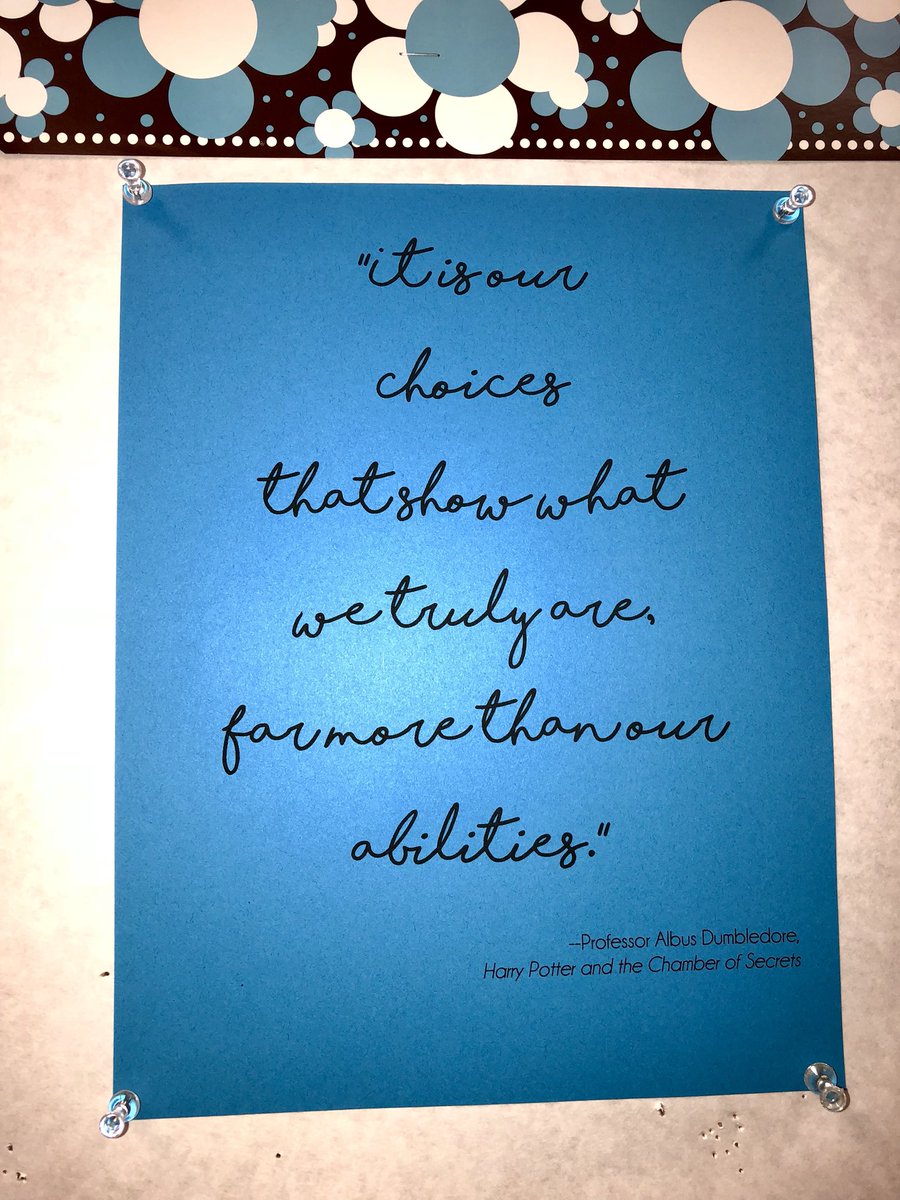 "it is our
choices
that show what
we truly are,
far more than our
abilities."
--Professor Albus Dumbledore,
Harry Potter and the Chamber of Secrets